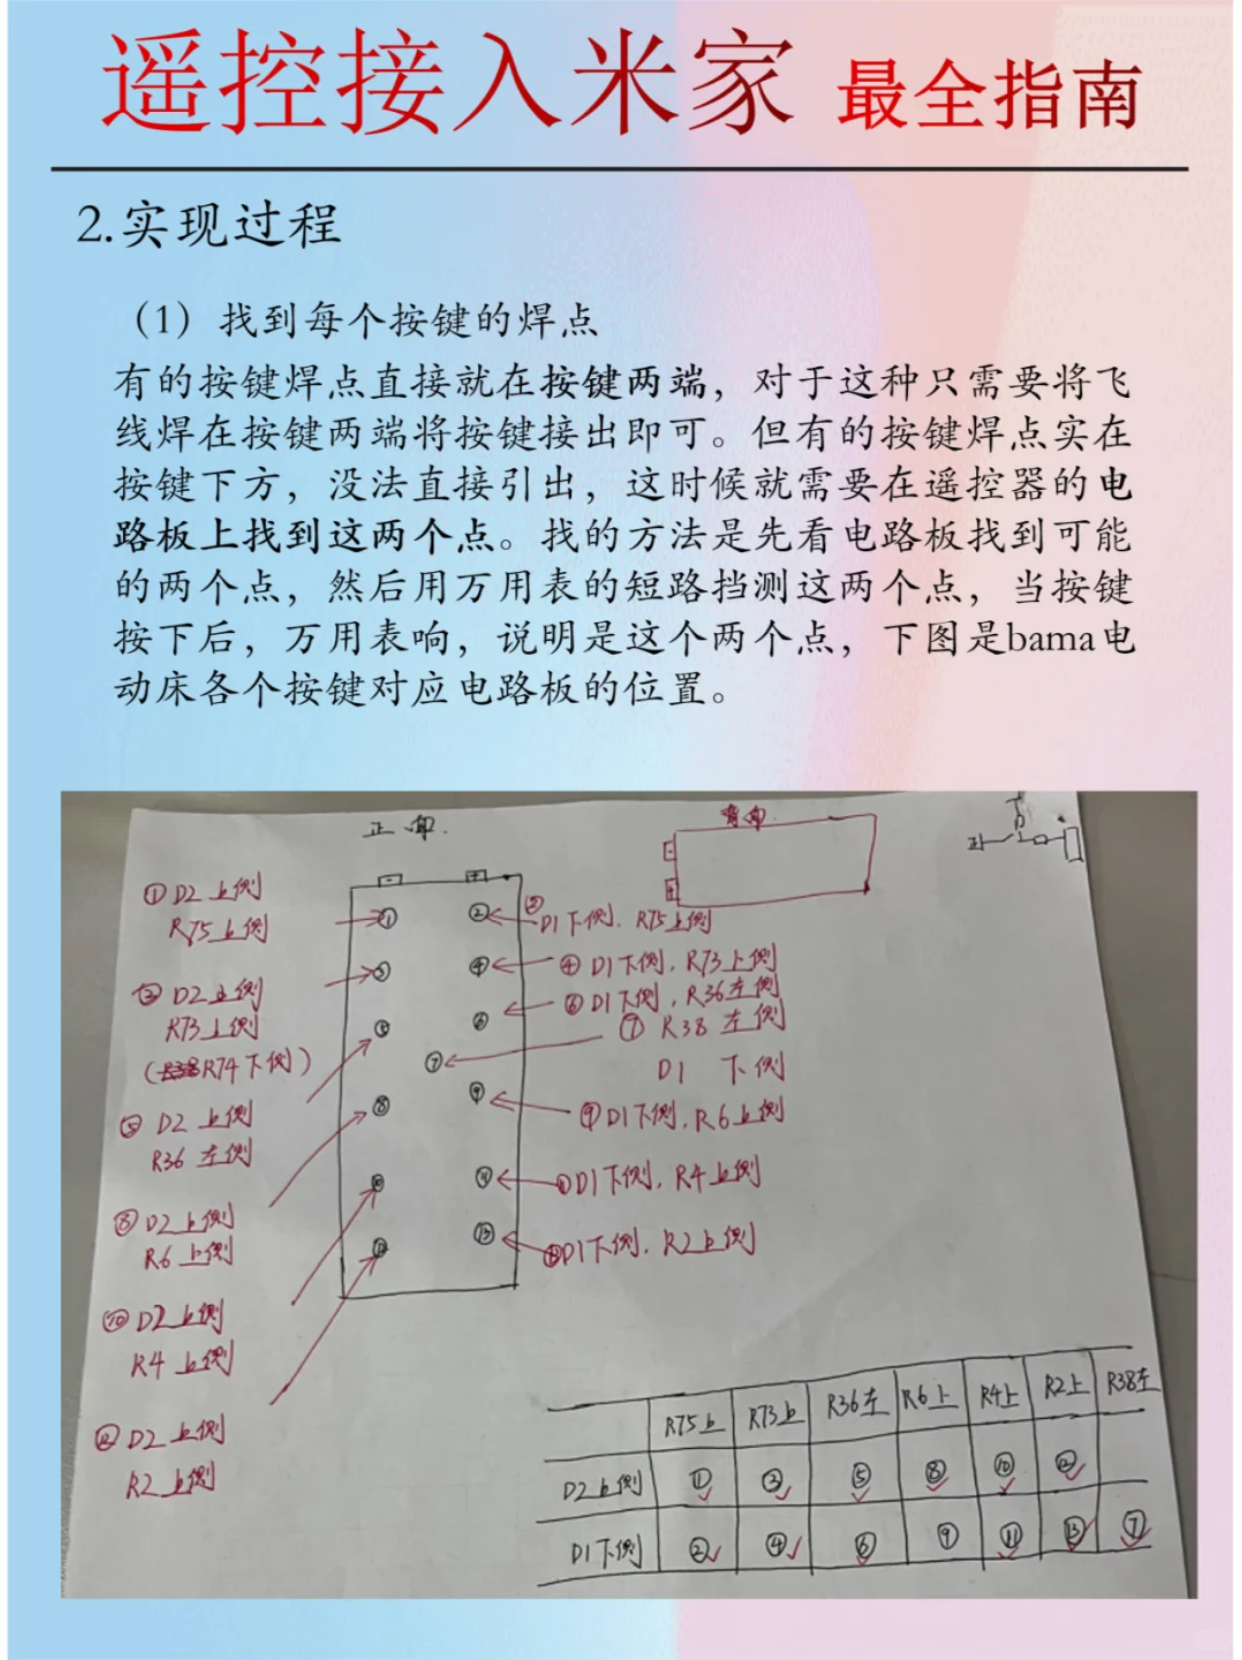 遥控接入米家 最全指南
2.实现过程
（1）找到每个按键的焊点
有的按键焊点直接就在按键两端，对于这种只需要将飞
线焊在按键两端将按键接出即可。但有的按键焊点实在
按键下方，没法直接引出，这时候就需要在遥控器的电
路板上找到这两个点。找的方法是先看电路板找到可能
的两个点，然后用万用表的短路挡测这两个点，当按键
按下后，万用表响，说明是这个两个点，下图是bama电
动床各个按键对应电路板的位置。
正面.
背面
- +
- +
① D2上侧
R75上侧
③ D2上侧
R73上侧
(R74下侧)
⑤ D2上侧
R36左侧
⑧ D2上侧
R6上侧
⑩ D2上侧
R4上侧
⑫ D2上侧
R2上侧
① ②
③ ④
⑤ ⑥
⑦
⑧ ⑨
⑩ ⑪
⑫ ⑬
② D1下侧. R75上侧
④ D1下侧. R73上侧
⑥ D1下侧. R36左侧
⑦ R38左侧
D1 下侧
⑨ D1下侧. R6上侧
⑪ D1下侧. R4上侧
⑬ D1下侧. R2上侧
R75上 R73上 R36左 R6上 R4上 R2上 R38左
D2上侧 ① ③ ⑤ ⑧ ⑩ ⑫
D1下侧 ② ④ ⑥ ⑨ ⑪ ⑬ ⑦